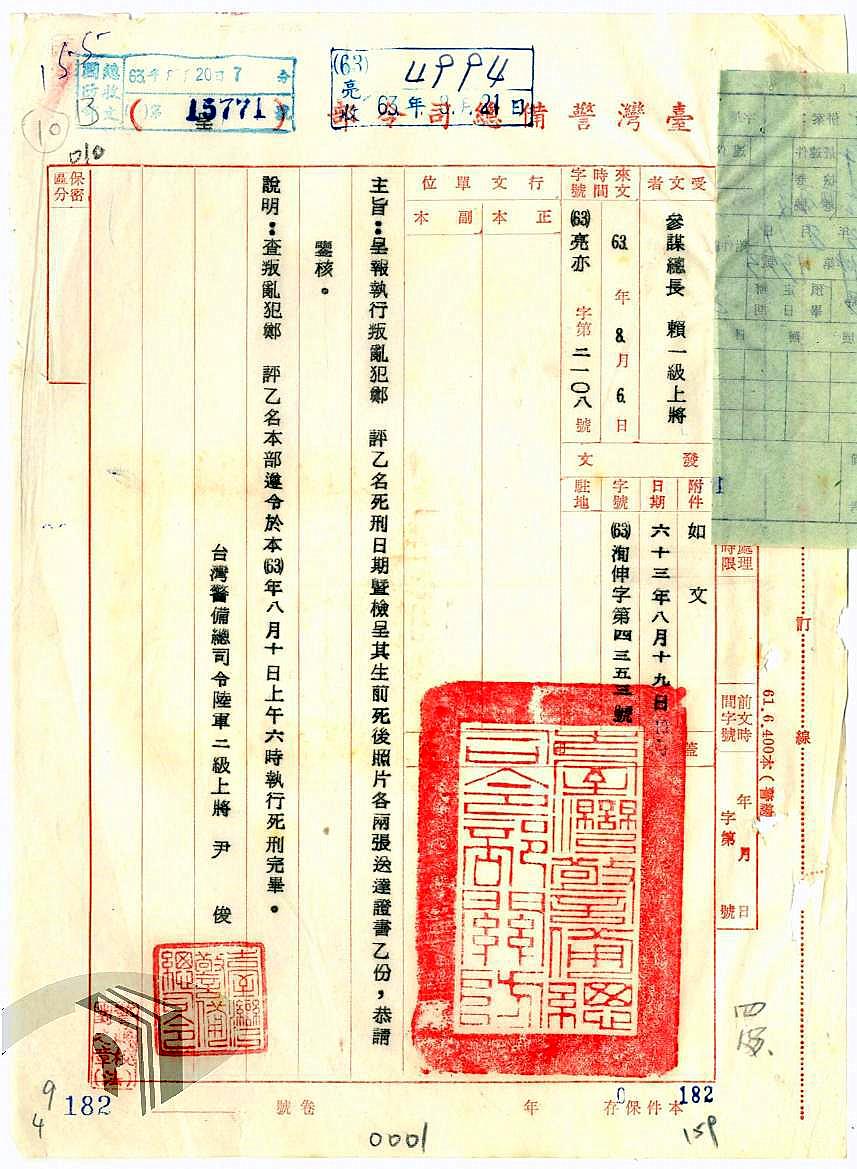 臺灣警備總司令部(呈)
155
3
10
010
國防 總收文
63年8月20日 7
第15771號
(63)亮收
4994
63年8月21日
保密區分
受文者
參謀總長 賴一級上將
來文時間字號
63年8月6日
(63)亮亦字第二一〇八號
行文單位
正本
副本
發文
附件
如文
日期
六十三年八月十九日
字號
(63)洵伸字第四三五三號
駐地
主旨：呈報執行叛亂犯鄭 評乙名死刑日期暨檢呈其生前死後照片各兩張送達證書乙份，恭請
鑒核。
說明：查叛亂犯鄭 評乙名本部遵令於本(63)年八月十日上午六時執行死刑完畢。
台灣警備總司令陸軍二級上將 尹 俊
臺灣警備總司令部關防
臺灣警備總司令
處理時限
前文時間字號
年 月 日
字第 號
預定辦畢日期
訂 線
61.6.400本(警總)
182
0
本件保存 年
卷號
182
159
0001
9
4